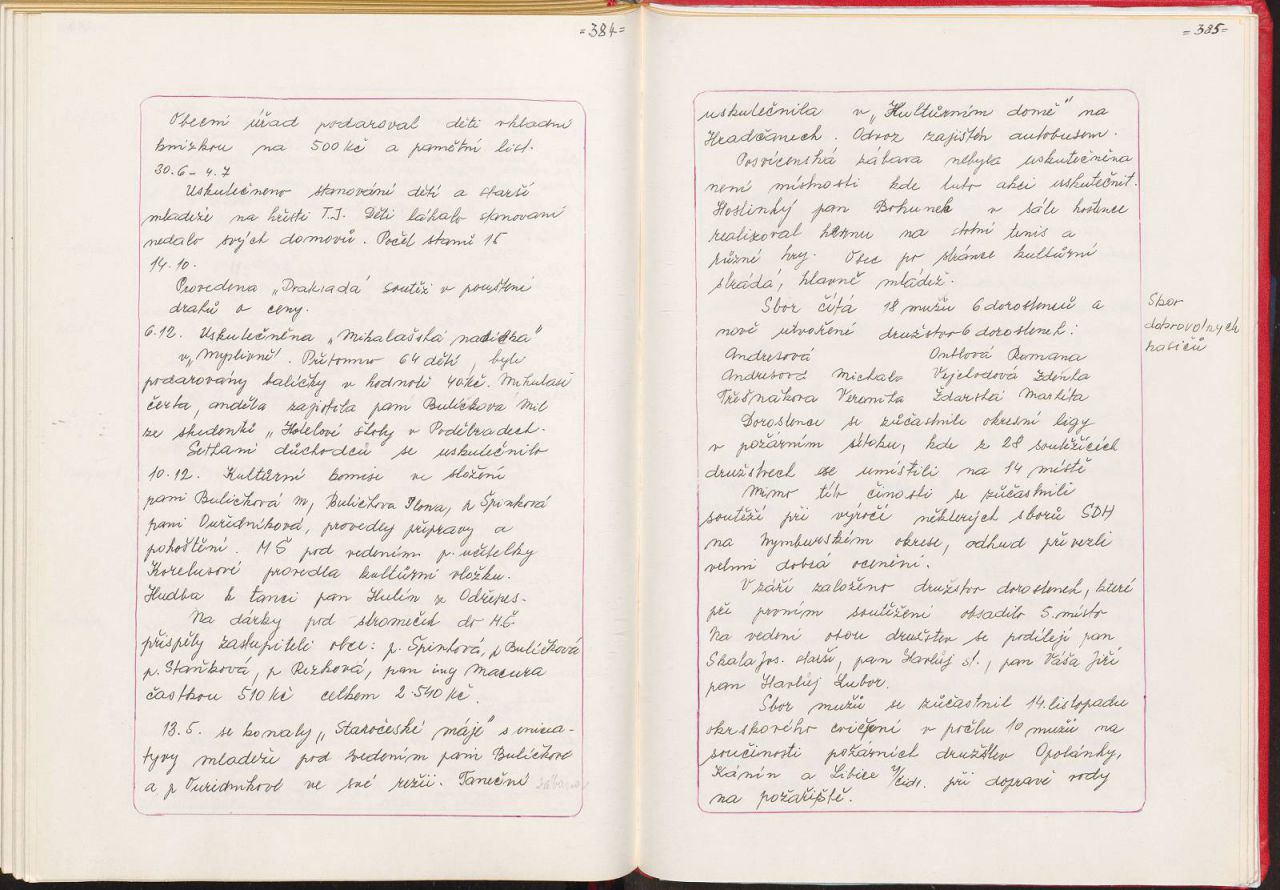 =384=
Obecní úřad podaroval děti vkladní
knížkou na 500 Kč a pamětní list.
30.6 - 4.7
Uskutečneno stanování dětí a starší
mládeže na hřišti T.J. Děti lákalo stanovaní
nedalo svých domovů. Počet stanů 15
14.10.
Provedena „Drakiada" soutěž v pouštění
draků o ceny.
6.12. Uskutečněna „Mikulašská nadílka"
v „Myslivně". Přítomno 64 dětí, byli
podarovány balíčky v hodnotě 40 Kč. Mikulaše
čerta, anděla zajistila paní Buličkova Mil
ze studentů „Hotelové školy v Poděbradech.
Setkaní důchodců se uskutečnilo
10.12. Kulturní komise ve složení
paní Buličková M, Buličkova Ilona, p Špinková
paní Ouředníková, provedly přípravy a
pohoštění. MŠ pod vedením p. učitelky
Korelusové provedla kulturní vložku.
Hudba k tanci pan Hulín z Odřepes.
Na dárky pod stromeček do M.Š.
přispěly zastupitelé obce: p. Špinková, p Buličková
p. Staňková, p Rezková, pan ing Macura
častkou 510 Kč celkem 2 540 Kč.
13.5. se konaly „Staročeské máje" s inicia-
tyvy mladeže pod vedením paní Buličkove
a p Ouřednikové ve své režii. Taneční zábava
=385=
uskutečnila v „Kulturním domě" na
Hradčanech. Odvoz zajištěn autobusem.
Posvícenská zábava nebyla uskutečněna
není místnosti kde tuto akci uskutečnit.
Hostinký pan Bohunek v sále hostince
realizoval hernu na stolní tenis a
různé hry. Obec po stránce kulturní
strádá, hlavně mládež.
Sbor čítá 18 mužů 6 dorostenců a
nově utvořené družstvo 6 dorostenek:
Andresová Romana
Andresová Michala Vejclodová Zdenka
Třešňákova Veronika Žďarská Markéta
Dorostence se zůčastnili okresní ligy
v požárním útoku, kde z 28 soutěžících
družstvech se umístili na 14 místě
Mimo této činosti se zůčastnili
soutěží při výročí některých sborů SDH
na Nymburském okrese, odkud přivezli
velmi dobrá ocenění.
V září založeno družstvo dorostenek, které
při prvním soutěžení obsadilo 5. místo
Na vedení obou družstev se podílejí pan
Skala Jos. starší, pan Havlůj st., pan Váša Jiří
pan Havlůj Lubor.
Sbor mužů se zůčastnil 14. listopadu
okrskového cvičení v počtu 10 mužů na
součinosti požárních družstev Opolánky,
Kánín a Libice n/Cidl. při dopravě vody
na požářiště.
Sbor
dobrovolných
hasičů